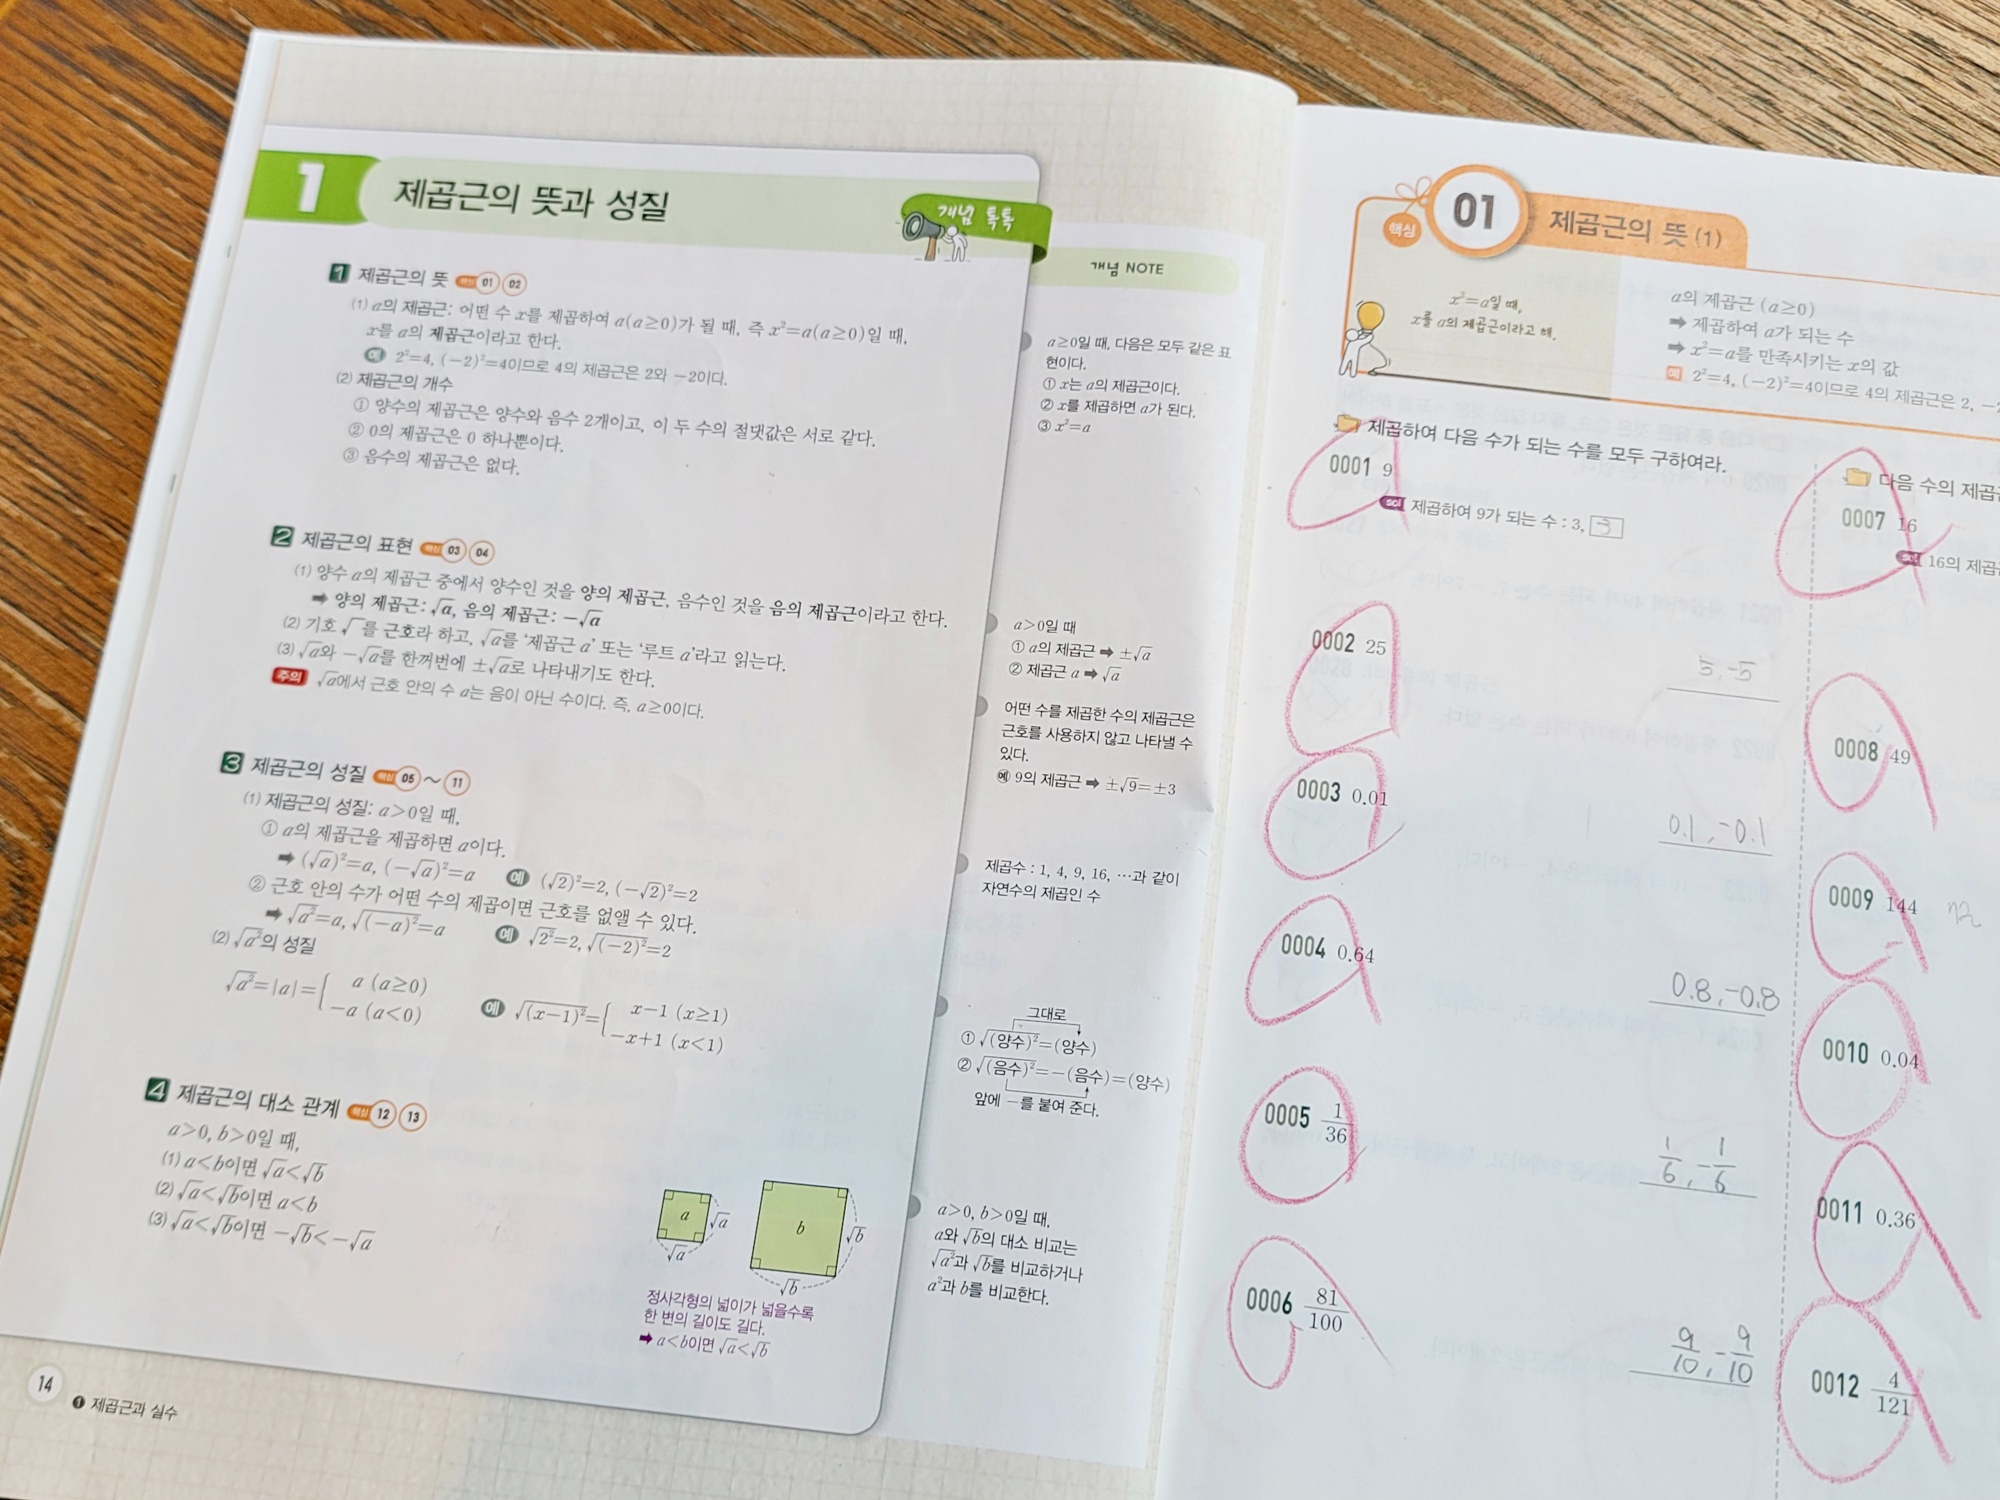 1 제곱근의 뜻과 성질
개념 톡톡
1 제곱근의 뜻 핵심 01 02
(1) a의 제곱근: 어떤 수 x를 제곱하여 a(a≥0)가 될 때, 즉 x²=a(a≥0)일 때,
x를 a의 제곱근이라고 한다.
예 2²=4, (−2)²=4이므로 4의 제곱근은 2와 −2이다.
(2) 제곱근의 개수
① 양수의 제곱근은 양수와 음수 2개이고, 이 두 수의 절댓값은 서로 같다.
② 0의 제곱근은 0 하나뿐이다.
③ 음수의 제곱근은 없다.
2 제곱근의 표현 핵심 03 04
(1) 양수 a의 제곱근 중에서 양수인 것을 양의 제곱근, 음수인 것을 음의 제곱근이라고 한다.
➡ 양의 제곱근: √a, 음의 제곱근: −√a
(2) 기호 √ 를 근호라 하고, √a를 '제곱근 a' 또는 '루트 a'라고 읽는다.
(3) √a와 −√a를 한꺼번에 ±√a로 나타내기도 한다.
주의 √a에서 근호 안의 수 a는 음이 아닌 수이다. 즉, a≥0이다.
3 제곱근의 성질 핵심 05 ~ 11
(1) 제곱근의 성질: a>0일 때,
① a의 제곱근을 제곱하면 a이다.
➡ (√a)²=a, (−√a)²=a 예 (√2)²=2, (−√2)²=2
② 근호 안의 수가 어떤 수의 제곱이면 근호를 없앨 수 있다.
➡ √a²=a, √(−a)²=a 예 √2²=2, √(−2)²=2
(2) √a²의 성질
√a²=|a|={ a (a≥0)
−a (a<0)
예 √(x−1)²={ x−1 (x≥1)
−x+1 (x<1)
4 제곱근의 대소 관계 핵심 12 13
a>0, b>0일 때,
(1) a<b이면 √a<√b
(2) √a<√b이면 a<b
(3) √a<√b이면 −√b<−√a
a √a
√a
b √b
√b
정사각형의 넓이가 넓을수록
한 변의 길이도 길다.
➡ a<b이면 √a<√b
14
❶ 제곱근과 실수
개념 NOTE
a≥0일 때, 다음은 모두 같은 표
현이다.
① x는 a의 제곱근이다.
② x를 제곱하면 a가 된다.
③ x²=a
a>0일 때
① a의 제곱근 ➡ ±√a
② 제곱근 a ➡ √a
어떤 수를 제곱한 수의 제곱근은
근호를 사용하지 않고 나타낼 수
있다.
예 9의 제곱근 ➡ ±√9=±3
제곱수 : 1, 4, 9, 16, …과 같이
자연수의 제곱인 수
그대로
① √(양수)²=(양수)
② √(음수)²=−(음수)=(양수)
앞에 −를 붙여 준다.
a>0, b>0일 때,
a와 √b의 대소 비교는
√a²과 √b를 비교하거나
a²과 b를 비교한다.
핵심 01 제곱근의 뜻 (1)
x²=a일 때,
x를 a의 제곱근이라고 해.
a의 제곱근 (a≥0)
➡ 제곱하여 a가 되는 수
➡ x²=a를 만족시키는 x의 값
예 2²=4, (−2)²=4이므로 4의 제곱근은 2, −2
제곱하여 다음 수가 되는 수를 모두 구하여라.
0001 9
sol 제곱하여 9가 되는 수 : 3, -3
0002 25
5, -5
0003 0.01
0.1, -0.1
0004 0.64
0.8, -0.8
0005 1/36
1/6, -1/6
0006 81/100
9/10, -9/10
다음 수의 제곱근
0007 16
sol 16의 제곱근
0008 49
0009 144
12
0010 0.04
0011 0.36
0012 4/121